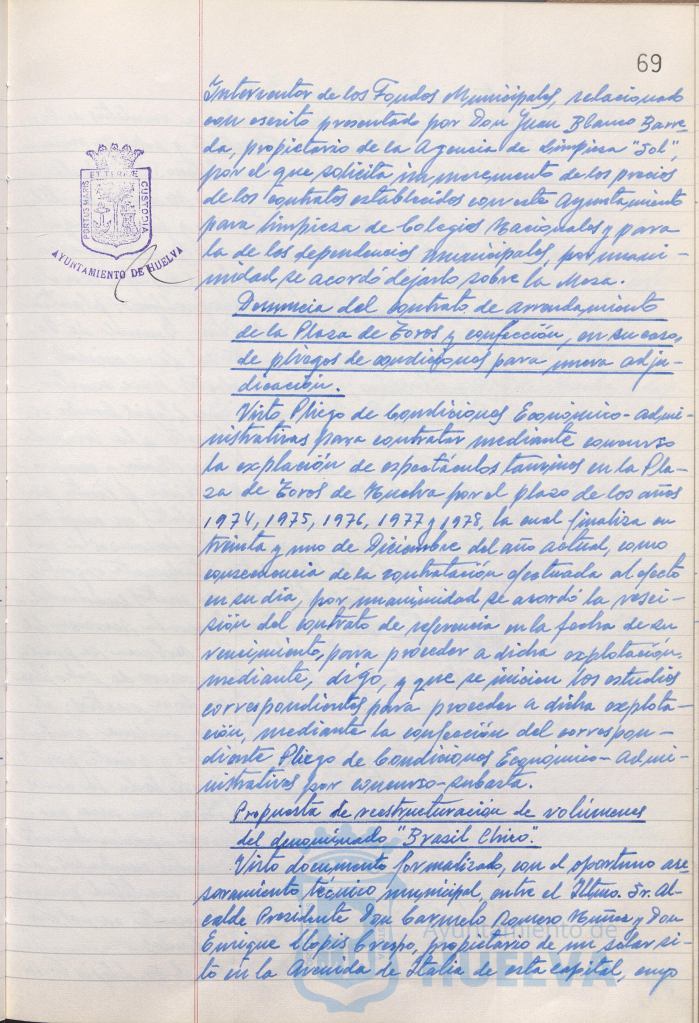 69
Interventor de los Fondos Municipales, relacionado
con escrito presentado por Don Juan Blanco Barre-
da, propietario de la Agencia de Limpieza "Sol",
por el que solicita incremento de los precios
de los contratos establecidos con este Ayuntamiento
para limpieza de Colegios Nacionales y para
la de las dependencias municipales, por unani-
midad, se acordó dejarlo sobre la Mesa.
PORTUS MARIS ET TERRE CUSTODIA
AYUNTAMIENTO DE HUELVA
Denuncia del contrato de arrendamiento
de la Plaza de Toros y confección, en su caso,
de pliegos de condiciones para nueva adju-
dicación.
Visto Pliego de Condiciones Económico-Admi-
nistrativas para contratar mediante concurso
la explación de espectáculos taurinos en la Pla-
za de Toros de Huelva por el plazo de los años
1974, 1975, 1976, 1977 y 1978, la cual finaliza en
treinta y uno de Diciembre del año actual, como
consecuencia de la contratación efectuada al efecto
en su día, por unanimidad se acordó la resci-
sión del contrato de referencia en la fecha de su
vencimiento, para proceder a dicha explotación,
mediante, digo, y que se inicien los estudios
correspondientes para proceder a dicha explota-
ción, mediante la confección del correspon-
diente Pliego de Condiciones Económico-Admi-
nistrativas por concurso-subasta.
Propuesta de reestructuración de volúmenes
del denominado "Brasil Chico".
Visto documento formalizado, con el oportuno ase-
soramiento técnico municipal, entre el Iltmo. Sr. Al-
calde Presidente Don Carmelo Romero Núñez y Don
Enrique Llopis Crespo, propietario de un solar si-
to en la Avenida de Italia de esta capital, cuyo
Ayuntamiento de
HUELVA